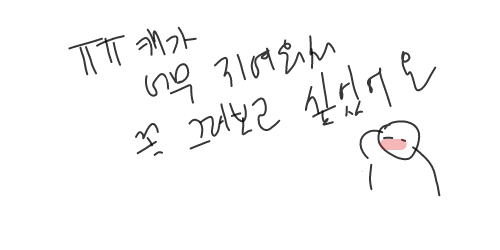 ㅠㅠ 걔가
너무 귀여워서
꼭 그려보고 싶었어요